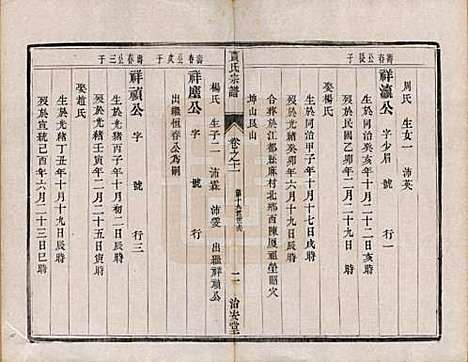 壽春公長子
周氏 生女一 沛英
祥瀛公 字少眉 號 行一
生於同治二年十月二十二日亥時
歿於民國乙卯年二月二十九日辰時
娶楊氏
生於同治甲子年十月十七日戌時
歿於光緒年二月二十五日
合葬於江都趙麻村北鄉西陳厦祖塋餘穴
坤山艮山
卷之十一
二
治安堂
壽春公次子
楊氏 生子二 沛霖 沛雯 出繼祥禎公
祥塵公 字 號 行
出繼恒春公為嗣
壽春公三子
祥禎公 字 號 行三
生於光緒丙子年十月初二日辰時
歿於光緒壬寅年二月二十五日寅時
娶趙氏
生於光緒丁丑年十月十九日辰時
歿於宣統己酉年六月二十三日亥時